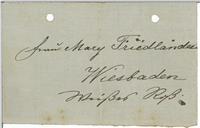 Frau Mary Friedländer
Wiesbaden
Weißes Roß.